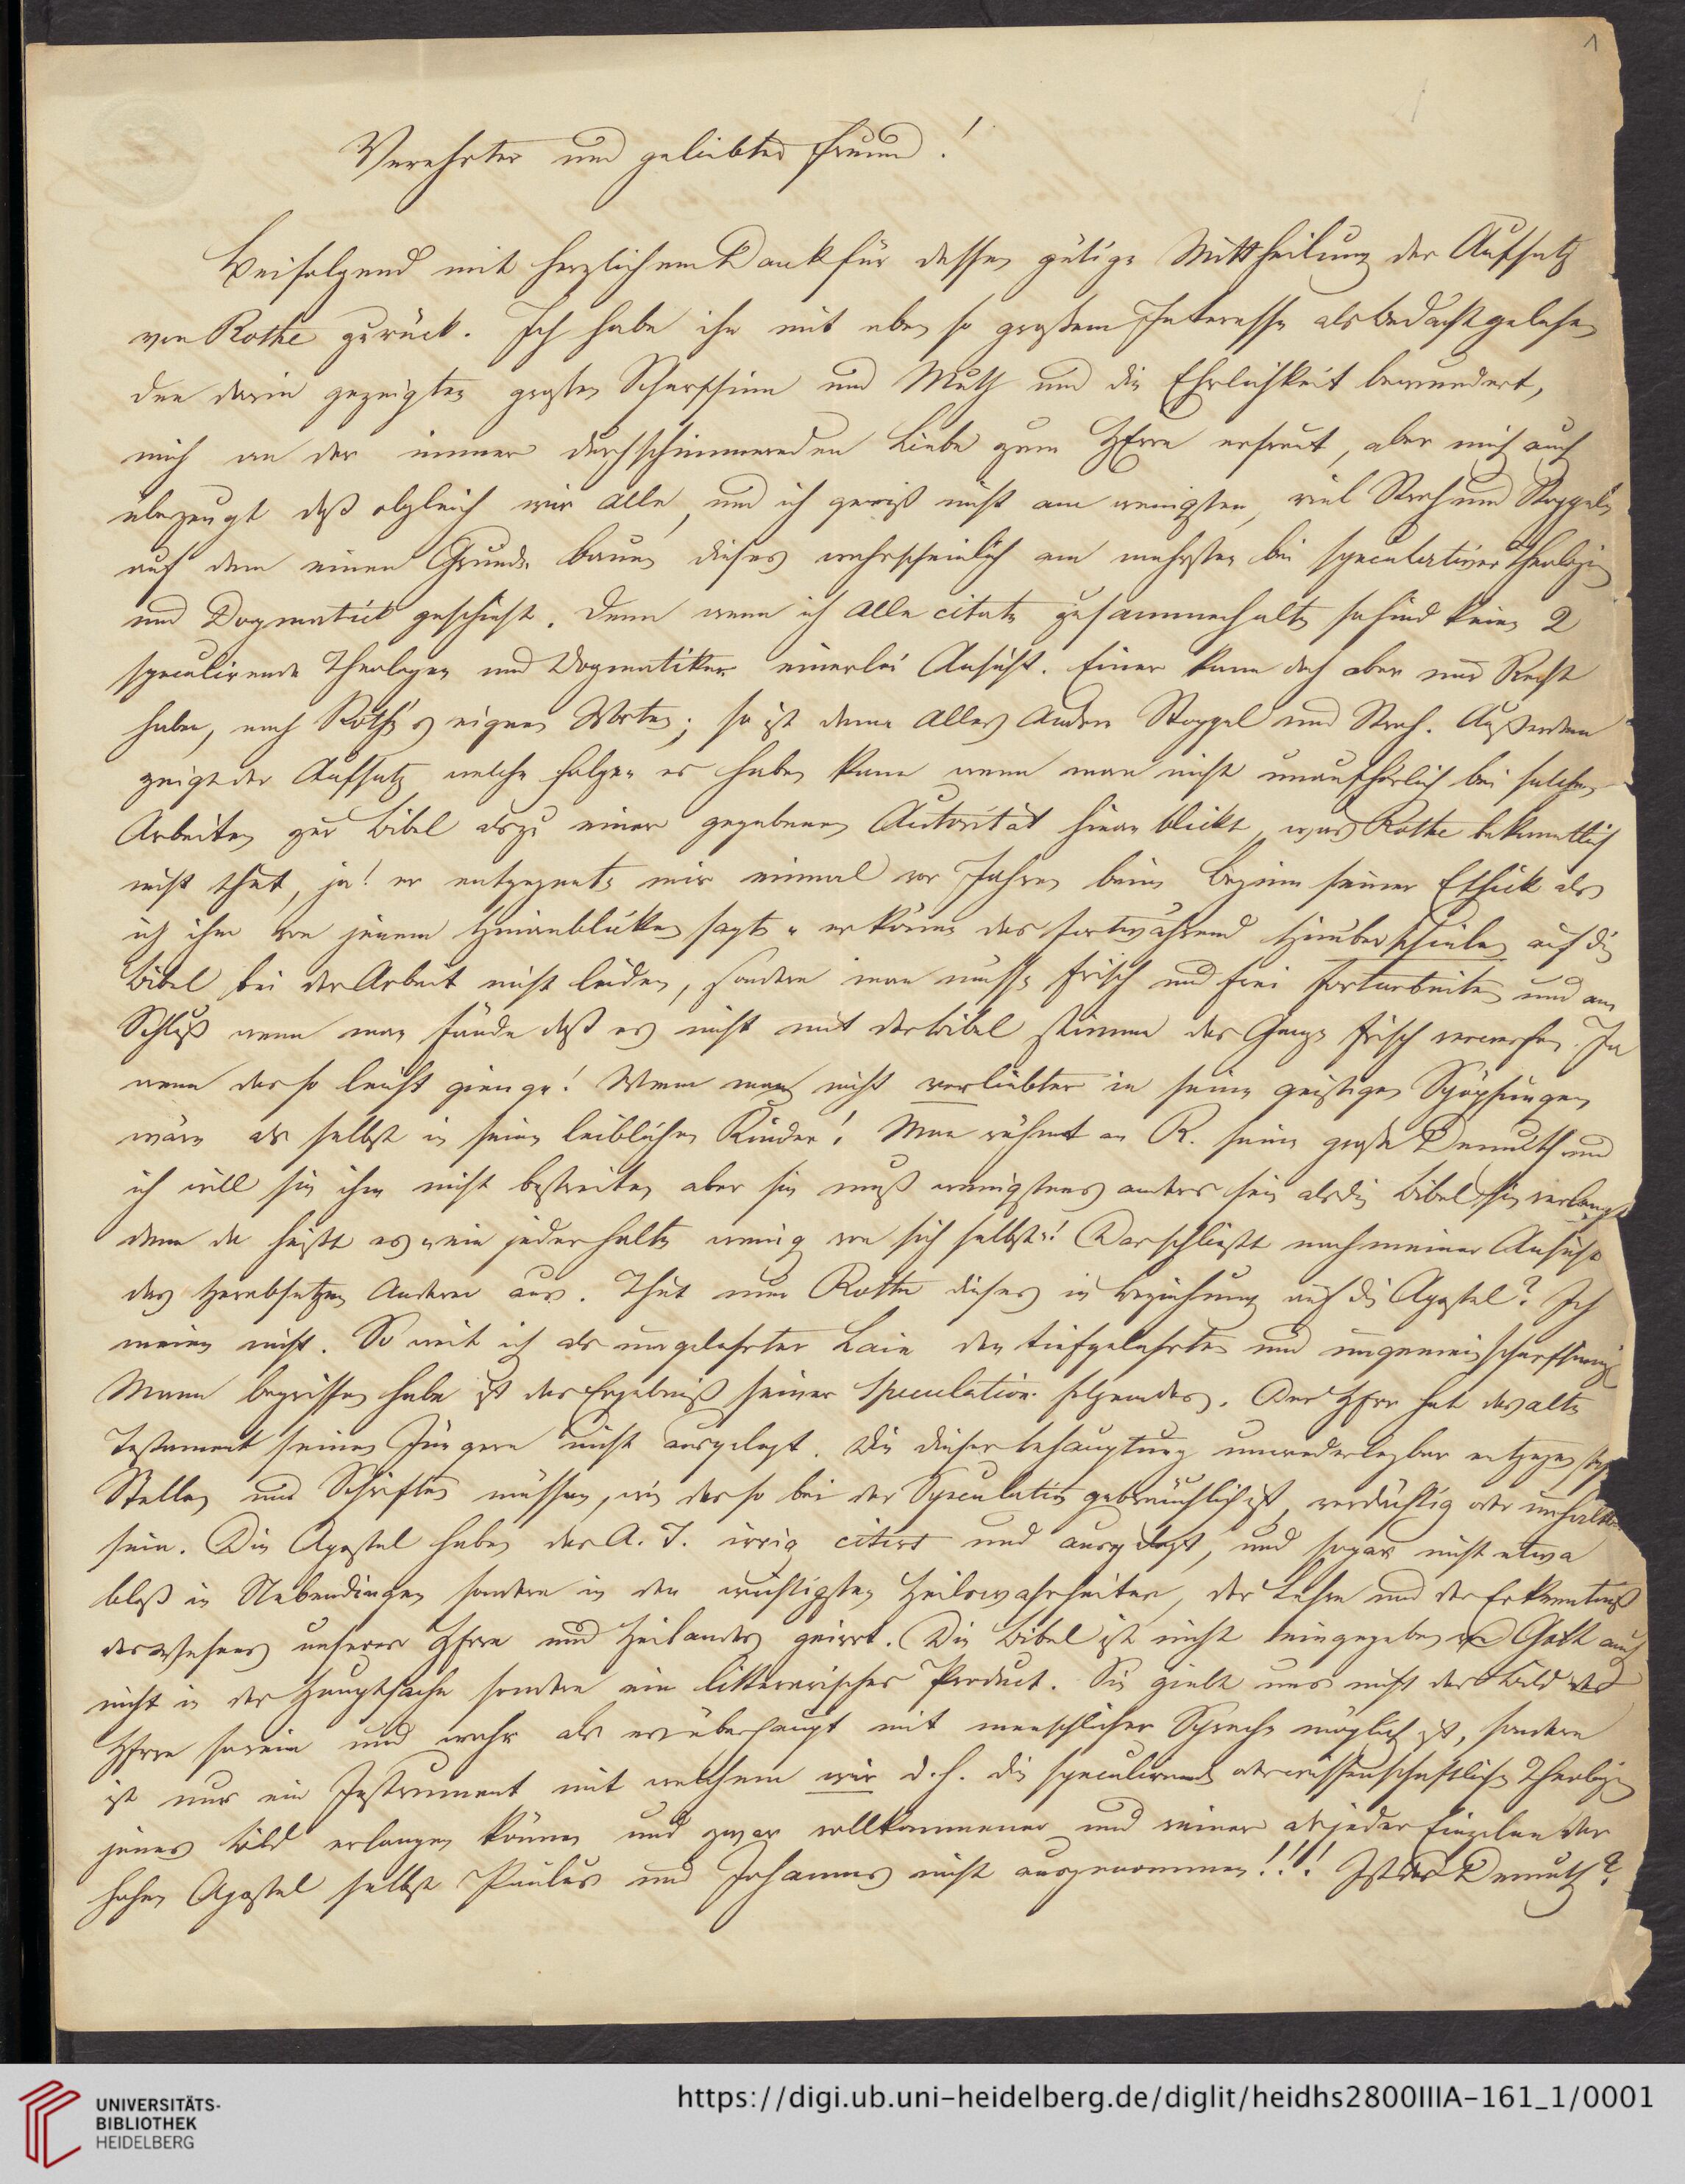 1
Verehrter und geliebter Freund!
Beifolgend mit herzlichem Dank für dessen gütige Mittheilung der Aufsatz
von Rothe zurück. Ich habe ihn mit eben so großem Interesse als Bedacht gelesen
den darin gezeigten großen Scharfsinn und Muth und die Ehrlichkeit bewundert,
mich an der immer durchschimmernden Liebe zum HErrn erfreut, aber mich auch
überzeugt daß obgleich wir alle, und ich gewiß nicht am wenigsten, viel Stroh und Stoppeln
auf dem einen Grunde bauen dieses wahrscheinlich am mehrsten bei speculativer Theologie
und Dogmatick geschieht. Denn wenn ich alle citate zusammenhalte so sind keine 2
speculirende Theologen und Dogmatiker einerlei Ansicht. Einer kann doch aber nur Recht
haben, nach Rothe's eignen Worten; so ist denn alles Andre Stoppel und Stroh. Außerdem
zeigt der Aufsatz welche Folgen es haben kann wenn man nicht unaufhörlich bei solchen
Arbeiten zur Bibel als zu einer gegebenen Autorität hinan blickt, was Rothe bekanntlich
nicht thut, ja! er entgegnete mir einmal vor Jahren beim Beginn seiner Ethick als
ich ihm von jenem Hinanblicken sagte „er könne das fortwährend Hinüberschielen auf die
Bibel bei der Arbeit nicht leiden, sondern man müsse frisch und frei fortarbeiten und am
Schluß wenn man fände daß es nicht mit der Bibel stimme das Ganze frisch verwerfen. Ja
wenn das so leicht gienge! Wenn man nicht verliebter in seine geistigen Schöpfungen
wäre als selbst in seine leiblichen Kinder! Man rühmt an R. seine große Demuth und
ich will sie ihm nicht bestreiten aber sie muß wenigstens anders sein als die Bibel sie verlangt
denn da heißt es „ein jeder halte wenig von sich selbst“! Das schließt nach meiner Ansicht
das Herabsetzen Anderer aus. Thut nun Rothe dieses in Beziehung auf die Apostel? Ich
meine nicht. So weit ich als ungelehrter Laie den tiefgelehrten und ungemein scharfsinnig
Mann begriffen habe ist das Ergebniß seiner Speculation folgendes. Der HErr hat das alte
Testament seinen Jüngern nicht ausgelegt. Die dieser Behauptung unwiederlegbar entgegen
Stellen und Schriften müssen, wie das so bei der Speculation gebräuchlich ist, verdächtig oder
sein. Die Apostel haben das A. T. irrig citirt und ausgelegt, und sogar nicht etwa
bloß in Nebendingen sondern in den wichtigsten Heilswahrheiten, der Lehre und der Erkenntniß
des Wesens unseres HErrn und Heilandes geirrt. Die Bibel ist nicht eingegeben von Gott auch
nicht in der Hauptsache sondern ein litterarisches Product. Sie giebt uns nicht das Bild des
HErrn so rein und wahr als es überhaupt mit menschlicher Sprache möglich ist, sondern
ist nur ein Instrument mit welchem wir d. h. die speculirende oder wissenschaftliche Theologie
jenes Bild erlangen können und zwar vollkommener und reiner als jeder Einzelne der
hohen Apostel selbst Paulus und Johannes nicht ausgenommen!!! Ist das Demuth?
UNIVERSITÄTS-
BIBLIOTHEK
HEIDELBERG
https://digi.ub.uni-heidelberg.de/diglit/heidhs2800IIIA-161_1/0001